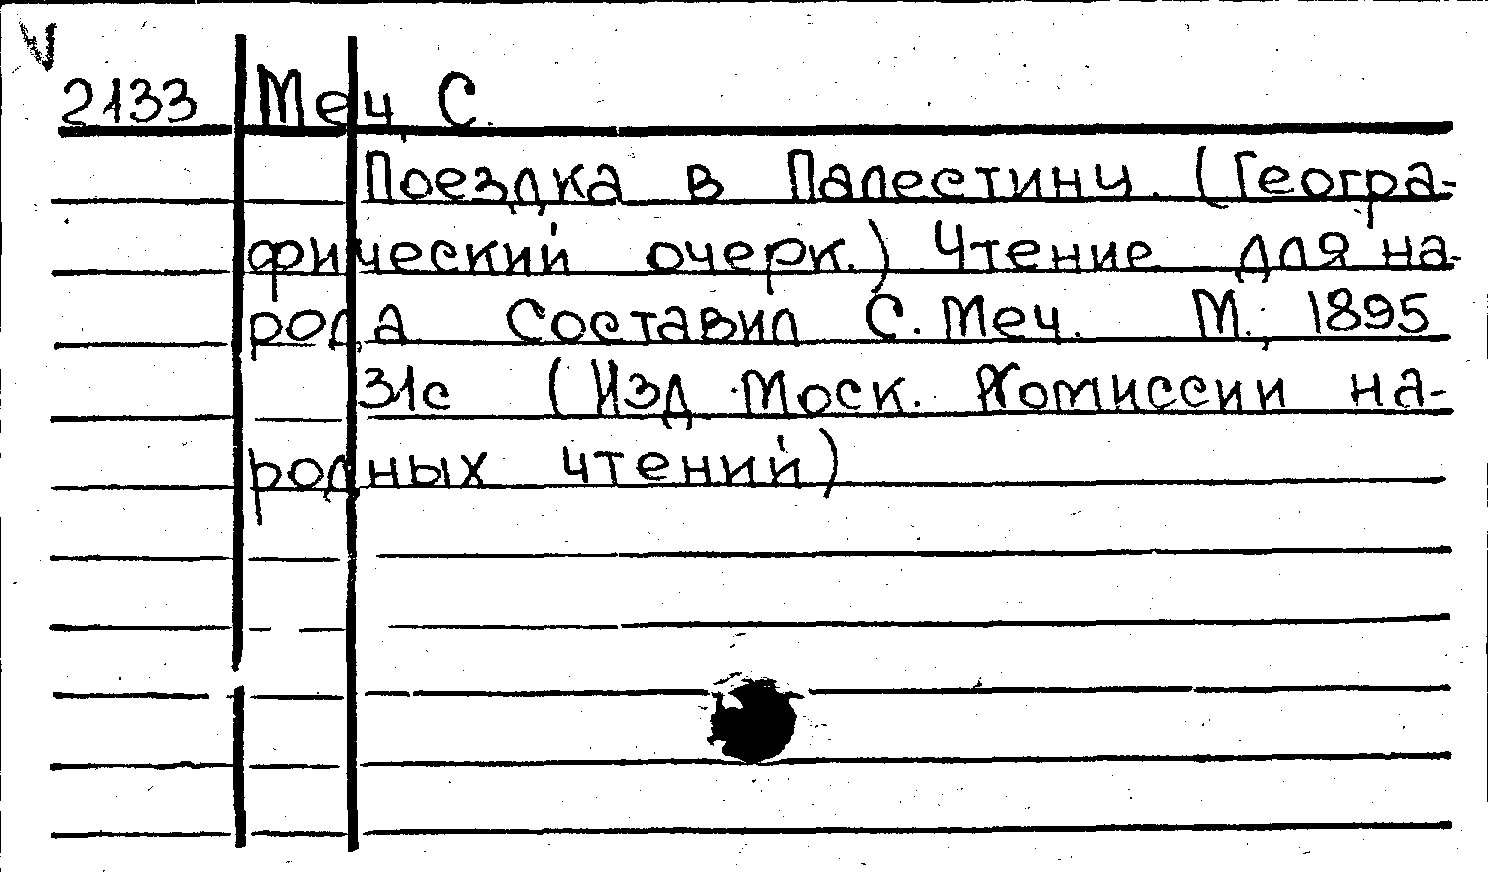 V
2133 Меч, С.
Поездка в Палестину. (Геогра-
фический очерк.) Чтение для на-
рода Составил С. Меч. М., 1895
31с (Изд Моск. Комиссии на-
родных чтений)